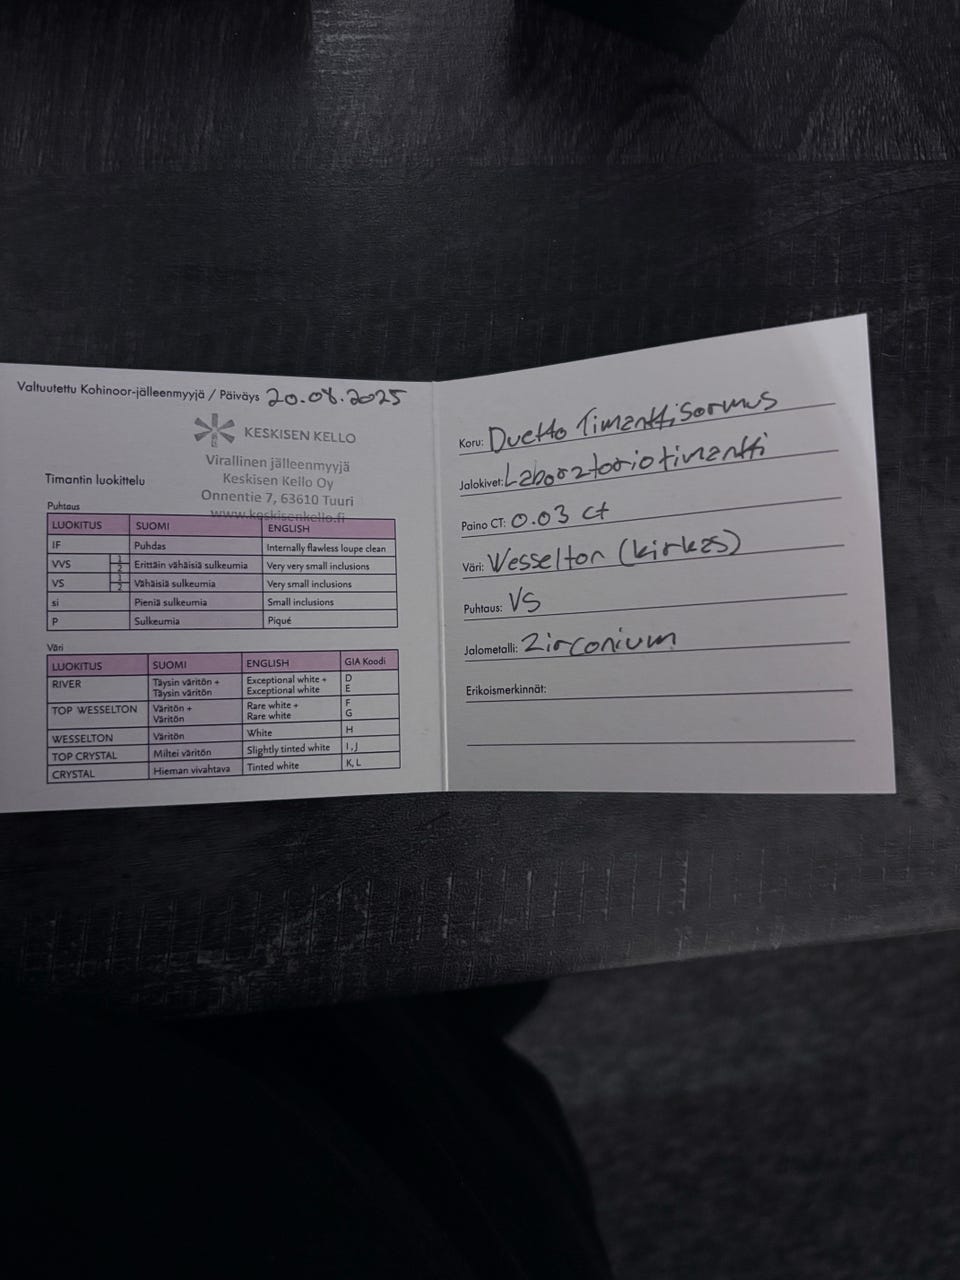 Valtuutettu Kohinoor-jälleenmyyjä / Päiväys 20.08.2025
KESKISEN KELLO
Virallinen jälleenmyyjä
Keskisen Kello Oy
Onnentie 7, 63610 Tuuri
www.keskisenkello.fi
Timantin luokittelu
Puhtaus
LUOKITUS SUOMI ENGLISH
IF Puhdas Internally flawless loupe clean
VVS 1 2 Erittäin vähäisiä sulkeumia Very very small inclusions
VS 1 2 Vähäisiä sulkeumia Very small inclusions
si Pieniä sulkeumia Small inclusions
P Sulkeumia Piqué
Väri
LUOKITUS SUOMI ENGLISH GIA Koodi
RIVER Täysin väritön + Exceptional white + D
Täysin väritön Exceptional white E
TOP WESSELTON Väritön + Rare white + F
Väritön Rare white G
WESSELTON Väritön White H
TOP CRYSTAL Miltei väritön Slightly tinted white I, J
CRYSTAL Hieman vivahtava Tinted white K, L
Koru: Duetto Timanttisormus
Jalokivet: Laboratoriotimantti
Paino CT: 0.03 ct
Väri: Wesselton (kirkas)
Puhtaus: VS
Jalometalli: Zirconium
Erikoismerkinnät: